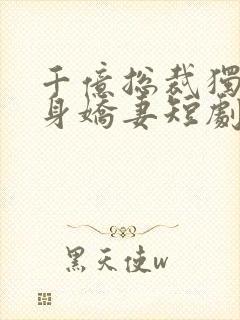 千億总裁獨
身嬌妻短劇
黑天使w